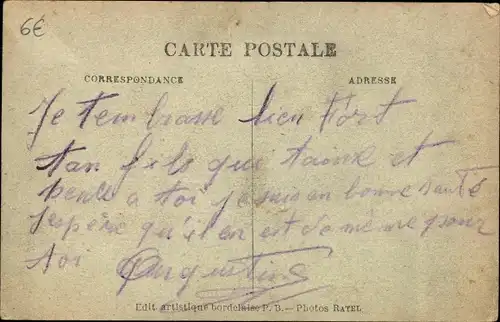 6€
CARTE POSTALE
CORRESPONDANCE
ADRESSE
Je tembrasse bien fort
ton fils qui taime et
pense a toi je suis en bonne santé
jespère qu'il en est de même pour
toi Augustine
Edit. artistique bordelaise P. D. — Photos RATEL